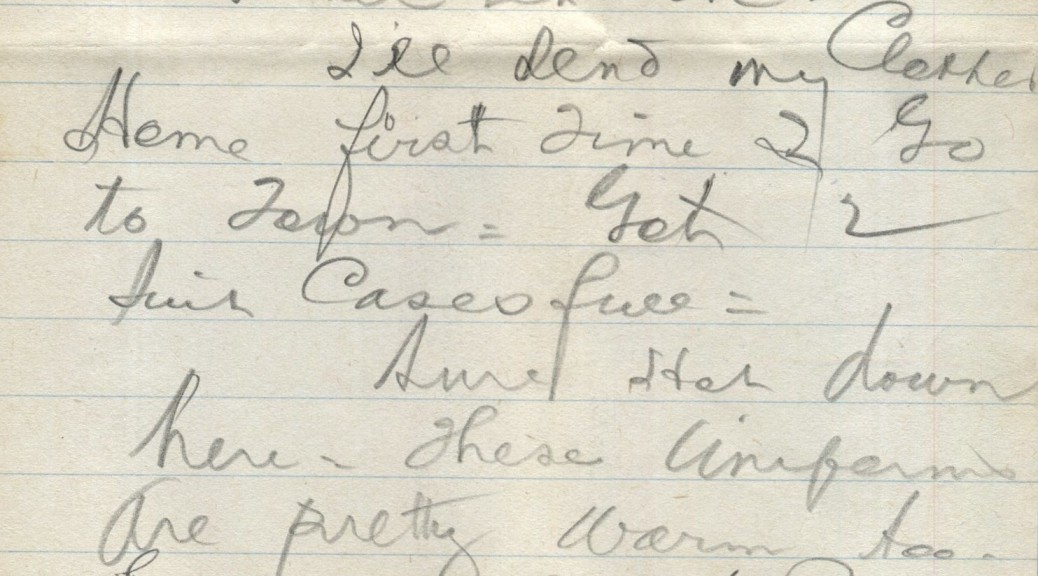 I'll send my Clothes
Home first Time I Go
to Town = Got 2
suit Cases full =
Sure Hot down
here - These Uniforms
Are pretty Warm too.